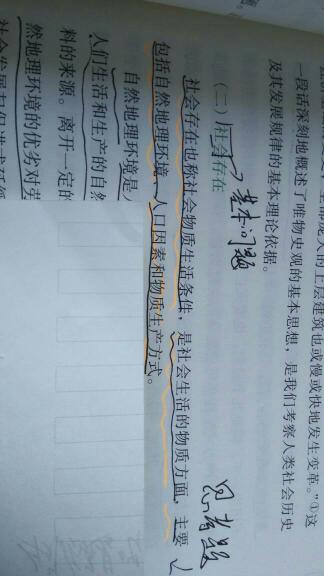 层建筑也或慢或快地发生变革。”①这
一段话深刻地概述了唯物史观的基本思想，是我们考察人类社会历史
及其发展规律的基本理论依据。
(二)社会存在
基本问题
思考题
社会存在也称社会物质生活条件，是社会生活的物质方面，主要
包括自然地理环境、人口因素和物质生产方式。
自然地理环境是人
人们生活和生产的自然
料的来源。离开一定的
然地理环境的优劣对